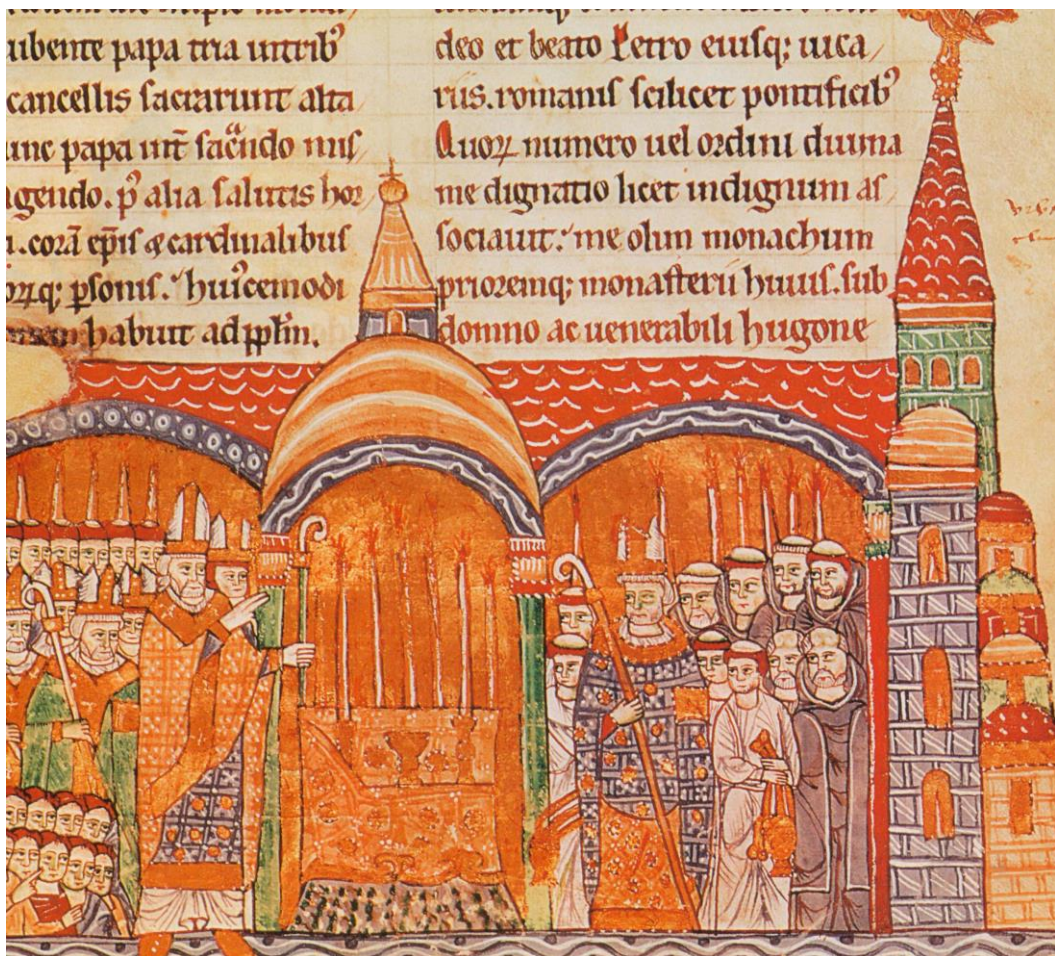 iubente papa tria in trib⁹
cancellis sacrarunt alta/
unc papa int̄ sac̄ndo mis/
agendo. p⁹ alia salutis hor/
corā ep̄is ⁊ cardinalibus
p̱sonis. huiꝰcemodi
habuit ad pp̄lm.
deo et beato Petro eiusq; uica/
riis. romanis scilicet pontificib⁹
Quoꝝ numero uel ordini diuina
me dignatio licet indignum as/
sociauit. me olim monachum
prioremq; monasterii huius. sub
domno ac uenerabili hugone